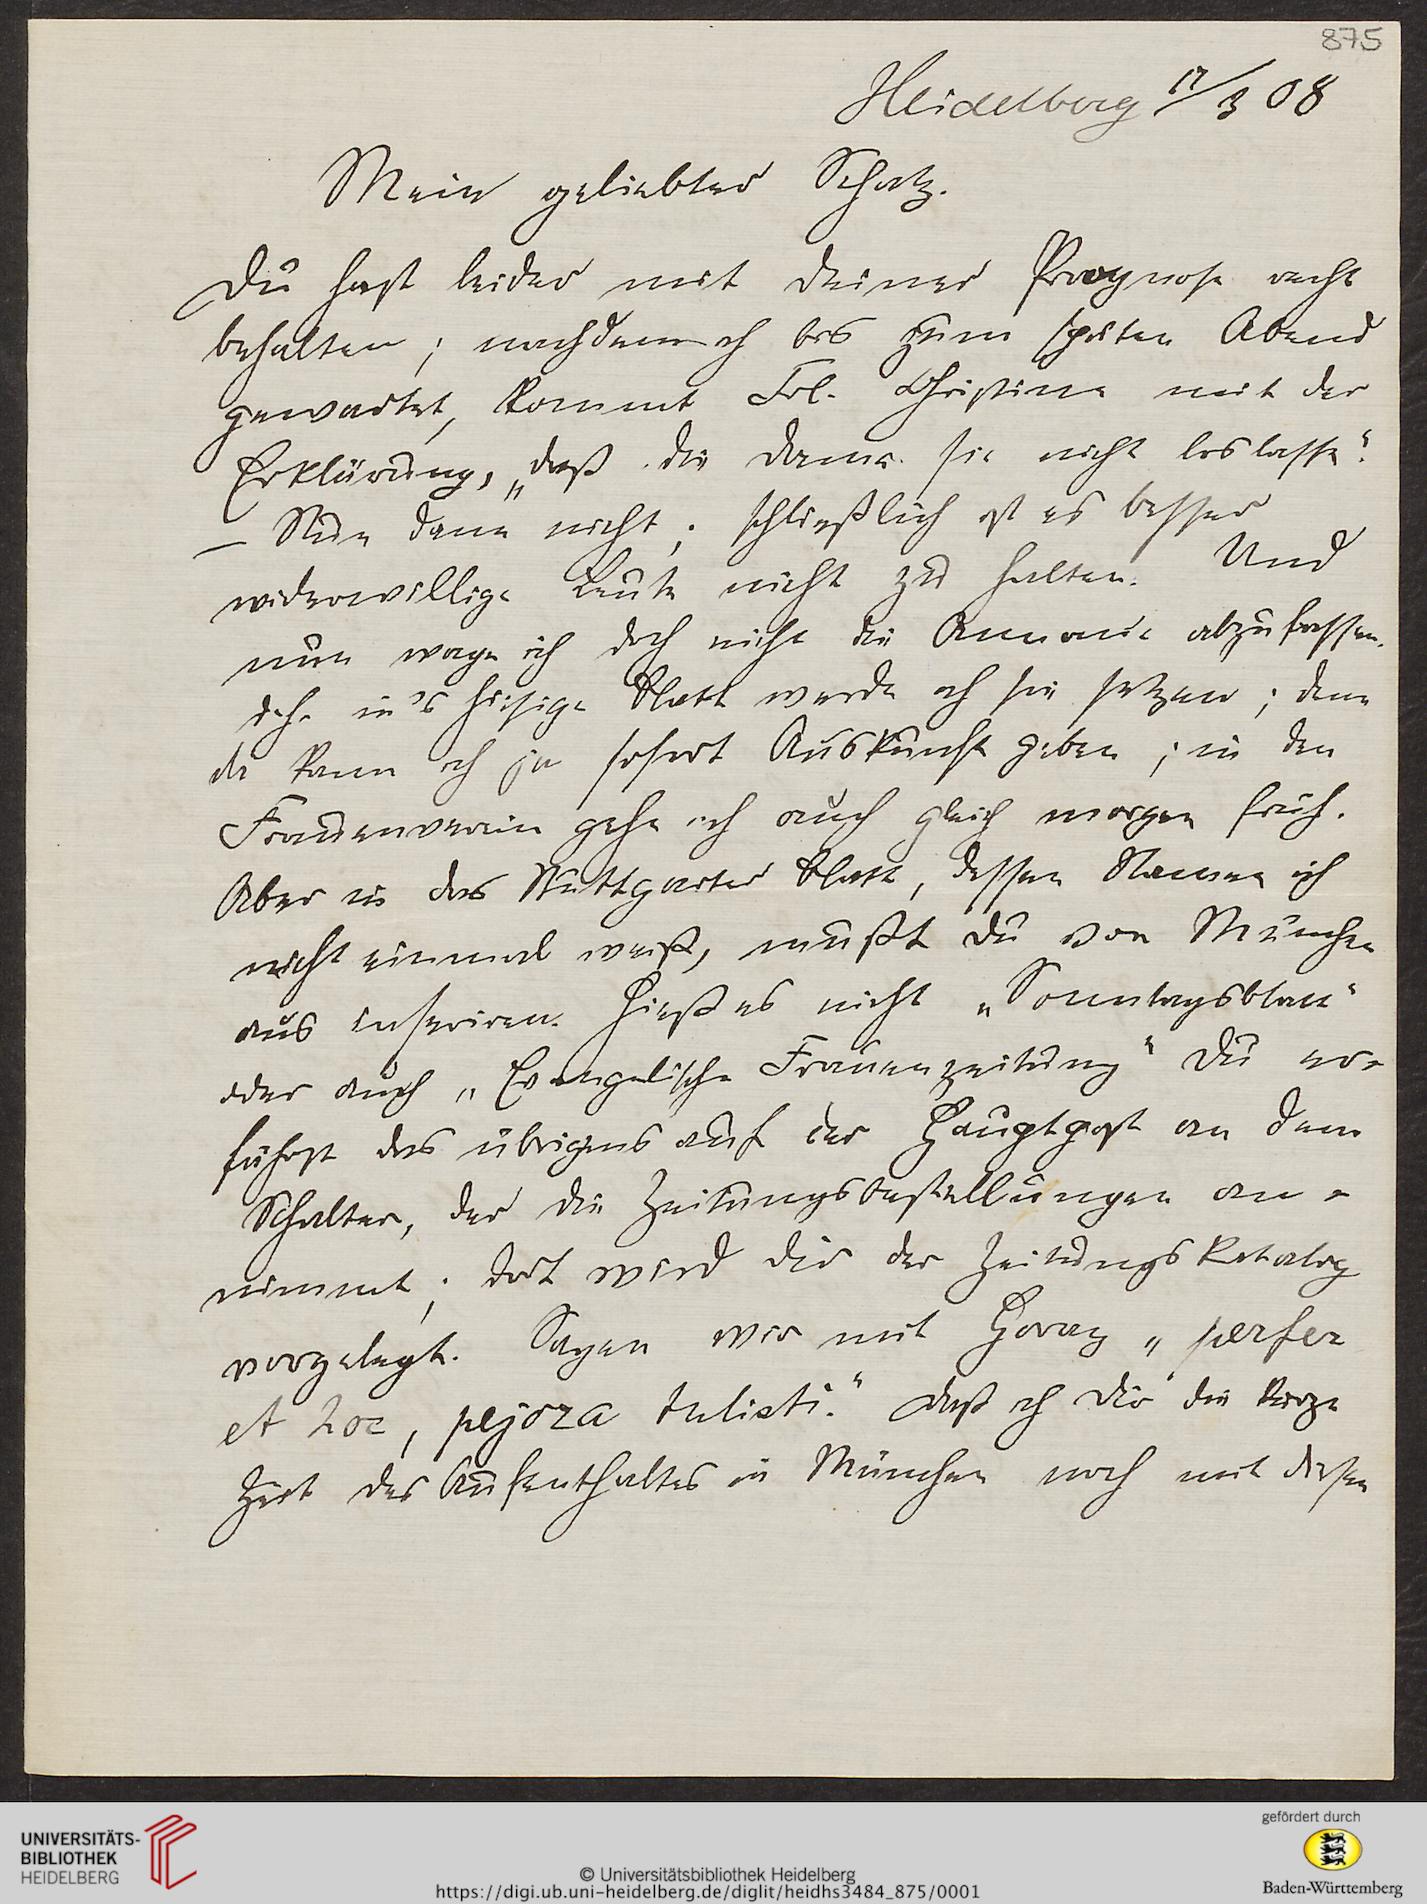 875
Heidelberg 17/3 08
Mein geliebter Schatz.
Du hast leider mit Deiner Prognose recht
behalten; nachdem ich bis zum späten Abend
gewartet, kommt Frl. Christine mit der
Erklärung, „daß die Dame sie nicht loslasse“.
— Nun dann nicht; schließlich ist es besser
widerwillige Leute nicht zu halten. Und
nun wage ich doch nicht die Annonce abzufassen.
d. h. in's hiesige Blatt werde ich sie setzen; denn
da kann ich ja sofort Auskunft geben; in den
Frauenverein gehe ich auch gleich morgen früh.
Aber in das Stuttgarter Blatt, dessen Namen ich
nicht einmal weiß, mußt Du von München
aus inseriren. Hieß es nicht „Sonntagsblatt“
oder auch „Evangelische Frauenzeitung“ Du er-
fährst das übrigens auf der Hauptpost an dem
Schalter, der die Zeitungsbestellungen an-
nimmt; dort wird Dir der Zeitungskatalog
vorgelegt. Sagen wir mit Horaz „perfer
et hoc, pejora tulisti.“ Daß ich Dir die kurze
Zeit des Aufenthaltes in München noch mit diesen
UNIVERSITÄTS-
BIBLIOTHEK
HEIDELBERG
© Universitätsbibliothek Heidelberg
https://digi.ub.uni-heidelberg.de/diglit/heidhs3484_875/0001
gefördert durch
Baden-Württemberg